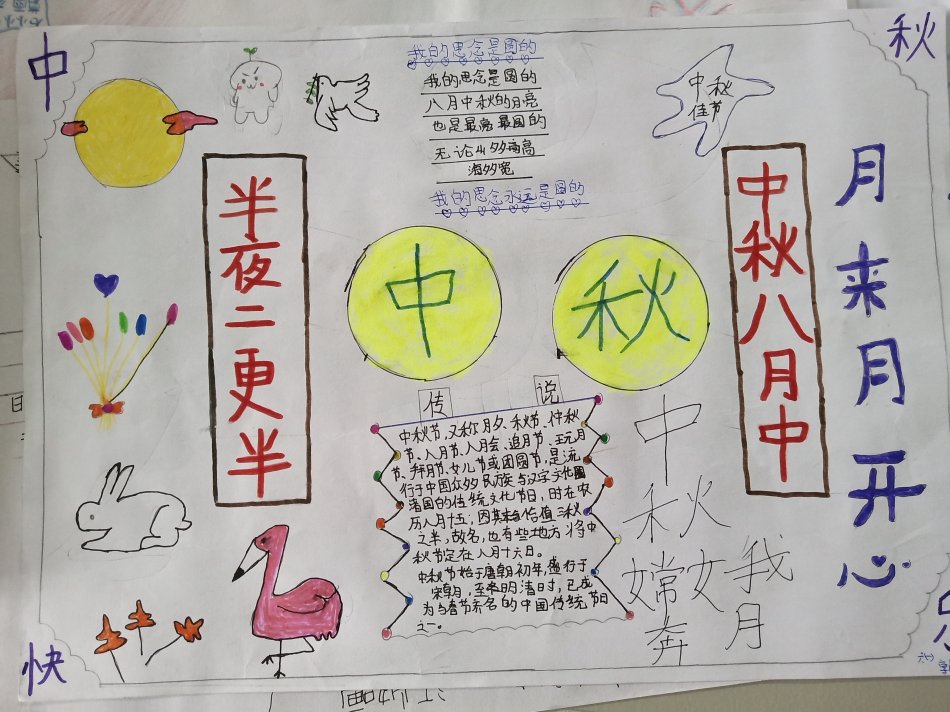 中
秋
我的思念是圆的
我的思念是圆的
八月中秋的月亮
也是最亮最圆的
无论山多高
海多宽
我的思念永远是圆的
中秋
佳节
半夜二更半
中秋八月中
月来月开心
中
秋
传说
中秋节,又称月夕、秋节、仲秋
节、八月节、八月会、追月节、玩月
节、拜月节、女儿节或团圆节,是流
行于中国众多民族与汉字文化圈
诸国的传统文化节日,时在农
历八月十五;因其恰值三秋
之半,故名,也有些地方将中
秋节定在八月十六日。
中秋节始于唐朝初年,盛行于
宋朝,至明清时,已成
为与春节齐名的中国传统节日
之一。
中
秋
嫦女我
奔月
快